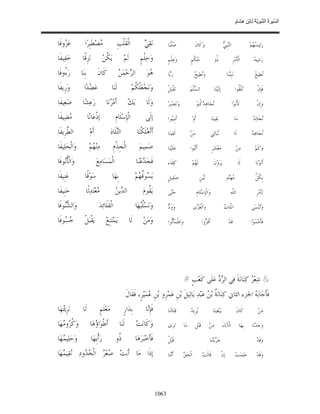 السيرة النبوية لابن هشام
رئيسهم النبي وكان صلبا نقي القلب مصطبرا عزوفا
رشيد الأمر ذو حكم وعلم وحلم لم يكن نزقا خفيفا
نطيع نبينا ونطيع ربا هو الرحمن كان بنا رءوفا
فإن تلقوا إلينا السلم نقبل ونجعلكم لنا عضدا وريفا
وإن تأبوا نجاهدكم ونصبر ولا يك أمرنا رعشا ضعيفا
نجالد ما بقينا أو تنيبوا إلى الإسلام إذعانا مضيفا
نجاهد لا نبالي من لقينا أأهلكنا التلاد أم الطريفا
وكم من معشر ألبوا علينا صميم الجذم منهم والحليفا
أتونا لا يرون لهم كفاء فجدعنا المسامع والأنوفا
بكل مهند لين صقيل يسوقهم بها سوقا عنيفا
لأمر الله والإسلام حتى يقوم الدين معتدلا حنيفا
وتنسى اللات والعزى وود ونسلبها القلائد والشنوفا
فأمسوا قد أقروا واطمأنوا ومن لا يمتنع يقبل خسوفا
شعر كنانة في الرد على كعب
فأجابه الجزء الثاني كنانة بن عبد ياليل بن عمرو بن عمير، فقال
من كان يبغينا يريد قتالنا فإنا بدار معلم لا نريمها
وجدنا بها الآباء من قبل ما ترى وكانت لنا أطواؤها وكرومها
وقد جربتنا قبل فأخبرها ذو رأيها وحليمها
وقد علمت إن قالت الحق أننا إذا ما أبت صعر الخدود نقيمها
1063